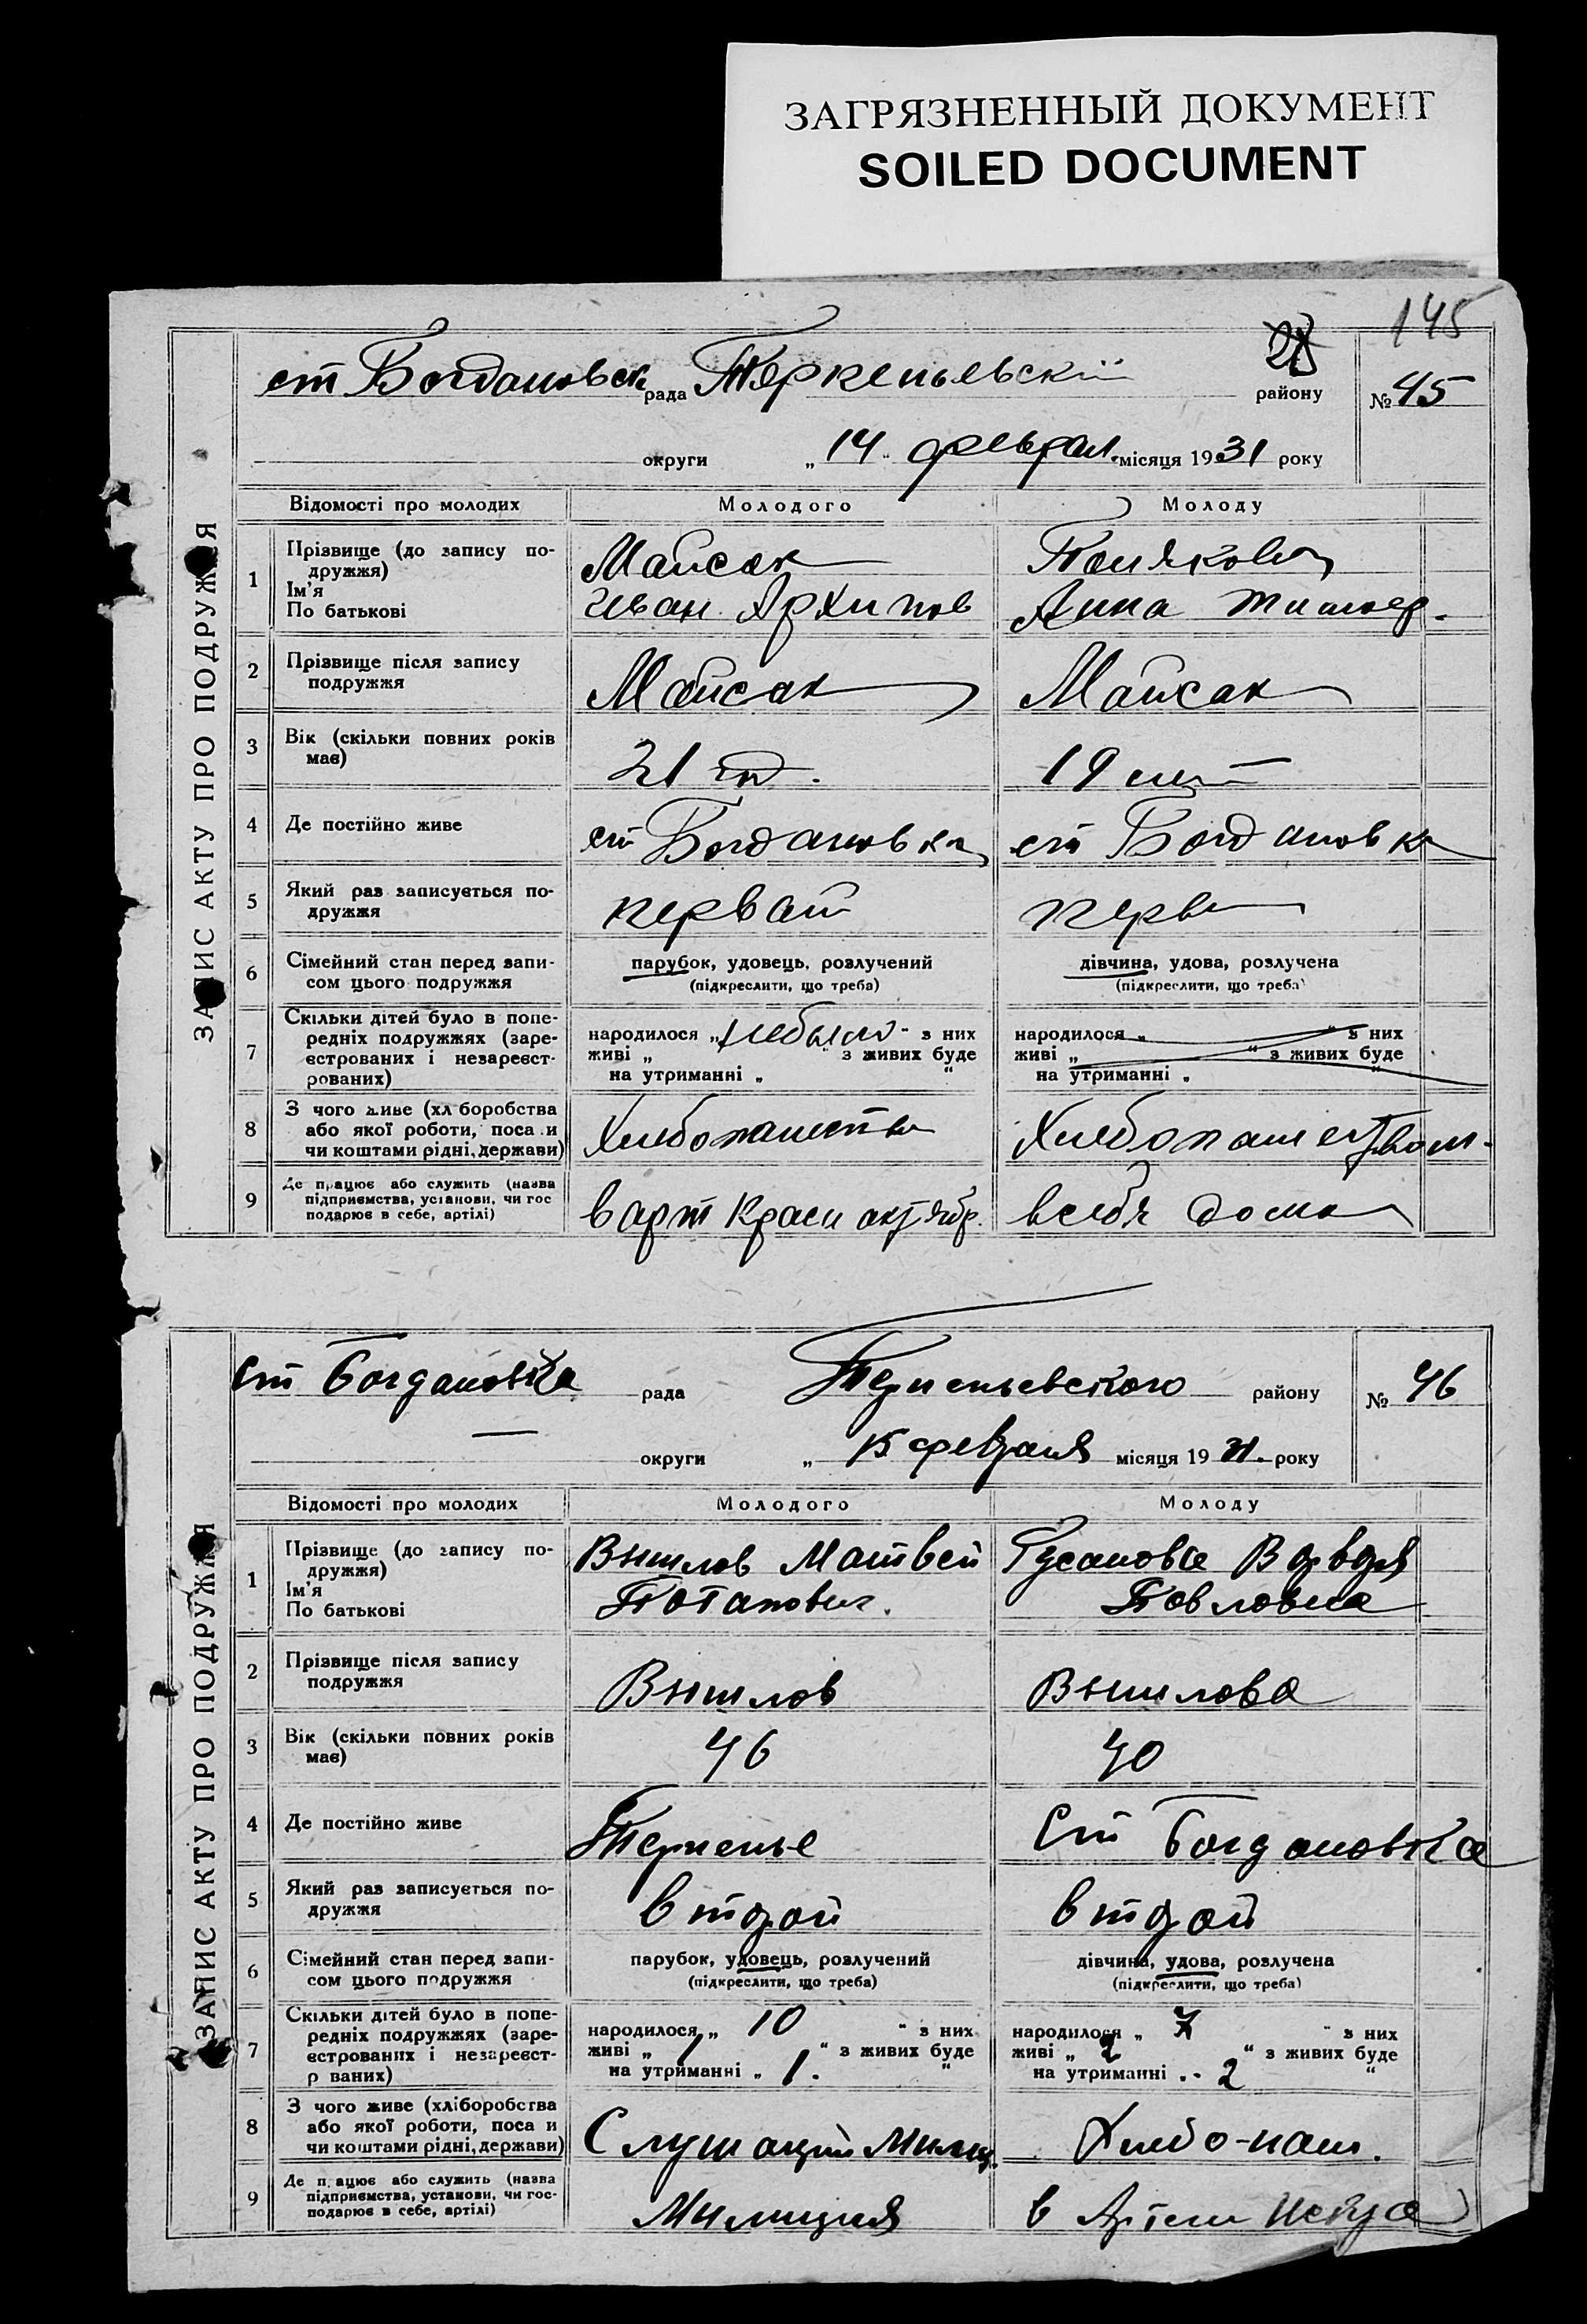 ЗАГРЯЗНЕННЫЙ ДОКУМЕНТ
SOILED DOCUMENT
145
ЗАПИС АКТУ ПРО ПОДРУЖЖЯ
ст Богдановск рада району № 45
округи „ 14 " феврал. місяця 1931 року
Відомості про молодих Молодого Молоду
1 Прізвище (до запису подружжя) Майсак
Ім'я Иван Архипов Анна
По батькові
2 Прізвище після запису подружжя Майсак Майсак
3 Вік (скільки повних років має) 21 год. 19 лет
4 Де постійно живе ст Богдановка ст Богдановка
5 Який раз записується подружжя первай перв
6 Сімейний стан перед записом цього подружжя парубок, удовець, розлучений дівчина, удова, розлучена
(підкреслити, що треба) (підкреслити, що треба)
7 Скільки дітей було в попередніх подружжях (зареєстрованих і незареєстрованих) народилося „ небыло " з них народилося „ " з них
живі „ " з живих буде живі „ " з живих буде
на утриманні „ " на утриманні „ "
8 З чого живе (хліборобства або якої роботи, посади чи коштами рідні, держави) Хлебопашество Хлебопашеством
9 Де працює або служить (назва підприємства, установи, чи господарює в себе, артілі) в арт Красн октябр. в себя дома
ЗАПИС АКТУ ПРО ПОДРУЖЖЯ
ст Богдановка рада Терпеньевского району № 46
округи „ 15 февраля місяця 1931. року
Відомості про молодих Молодого Молоду
1 Прізвище (до запису подружжя) Вышлов Матвей Гусакова Варваря
Ім'я Потапович. Повловна
По батькові
2 Прізвище після запису подружжя Вышлов Вышлова
3 Вік (скільки повних років має) 46 40
4 Де постійно живе Терпенье Ст Богдановка
5 Який раз записується подружжя второй второй
6 Сімейний стан перед записом цього подружжя парубок, удовець, розлучений дівчина, удова, розлучена
(підкреслити, що треба) (підкреслити, що треба)
7 Скільки дітей було в попередніх подружжях (зареєстрованих і незареєстрованих) народилося „ 10 " з них народилося „ 7 " з них
живі „ 1 " з живих буде живі „ 2 " з живих буде
на утриманні „ 1. " на утриманні „ 2 "
8 З чого живе (хліборобства або якої роботи, посади чи коштами рідні, держави) Служащий Милиц. Хлебо-паш.
9 Де працює або служить (назва підприємства, установи, чи господарює в себе, артілі) Милиция в Артели